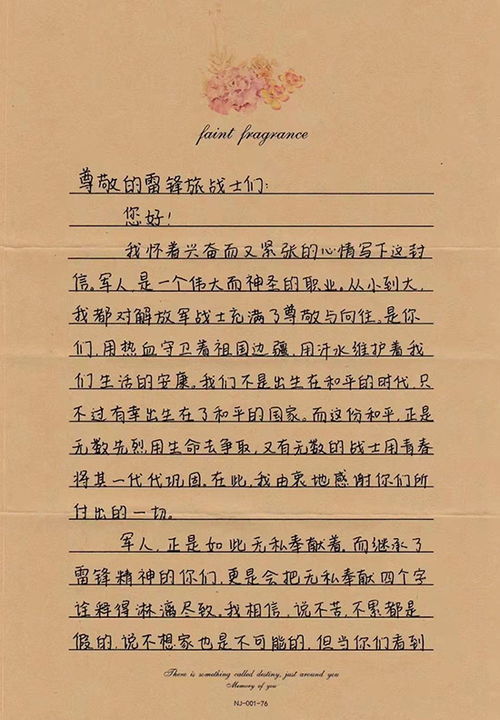 faint fragrance
尊敬的雷锋旅战士们:
您好!
我怀着兴奋而又紧张的心情写下这封
信。军人是一个伟大而神圣的职业。从小到大,
我都对解放军战士充满了尊敬与向往。是你
们,用热血守卫着祖国边疆,用汗水维护着我
们生活的安康。我们不是出生在和平的时代,只
不过有幸出生在了和平的国家。而这份和平,正是
无数先烈用生命去争取,又有无数的战士用青春
将其一代代巩固。在此,我由衷地感谢你们所
付出的一切。
军人,正是如此无私奉献着。而继承了
雷锋精神的你们,更是会把无私奉献四个字
诠释得淋漓尽致。我相信,说不苦,不累都是
假的,说不想家也是不可能的,但当你们看到
There is something called destiny, just around you
Memory of you
NJ-001-76